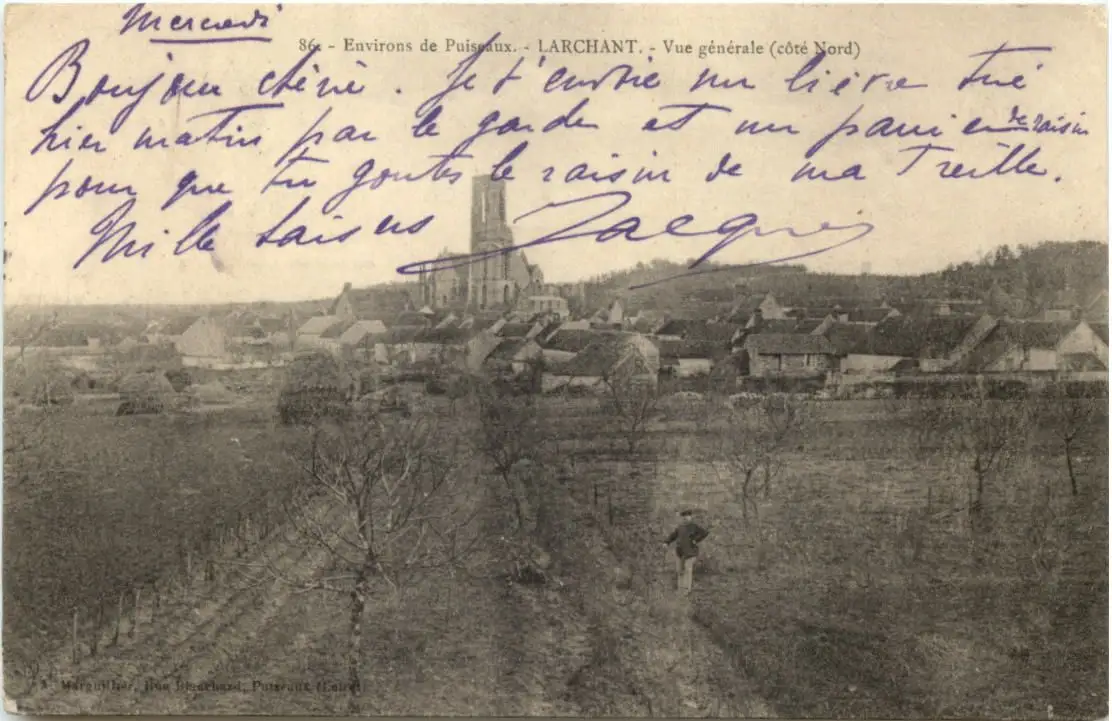 Mercredi
86. - Environs de Puiseaux. - LARCHANT. - Vue générale (côté Nord)
Bonjour chérie. Je t'envoie un lièvre tué
hier matin par le garde et un panier de raisin
pour que tu goutes le raisin de ma Treille.
Mille baisers Jacques
Marguillier, Rue Blanchard, Puiseaux (Loiret)